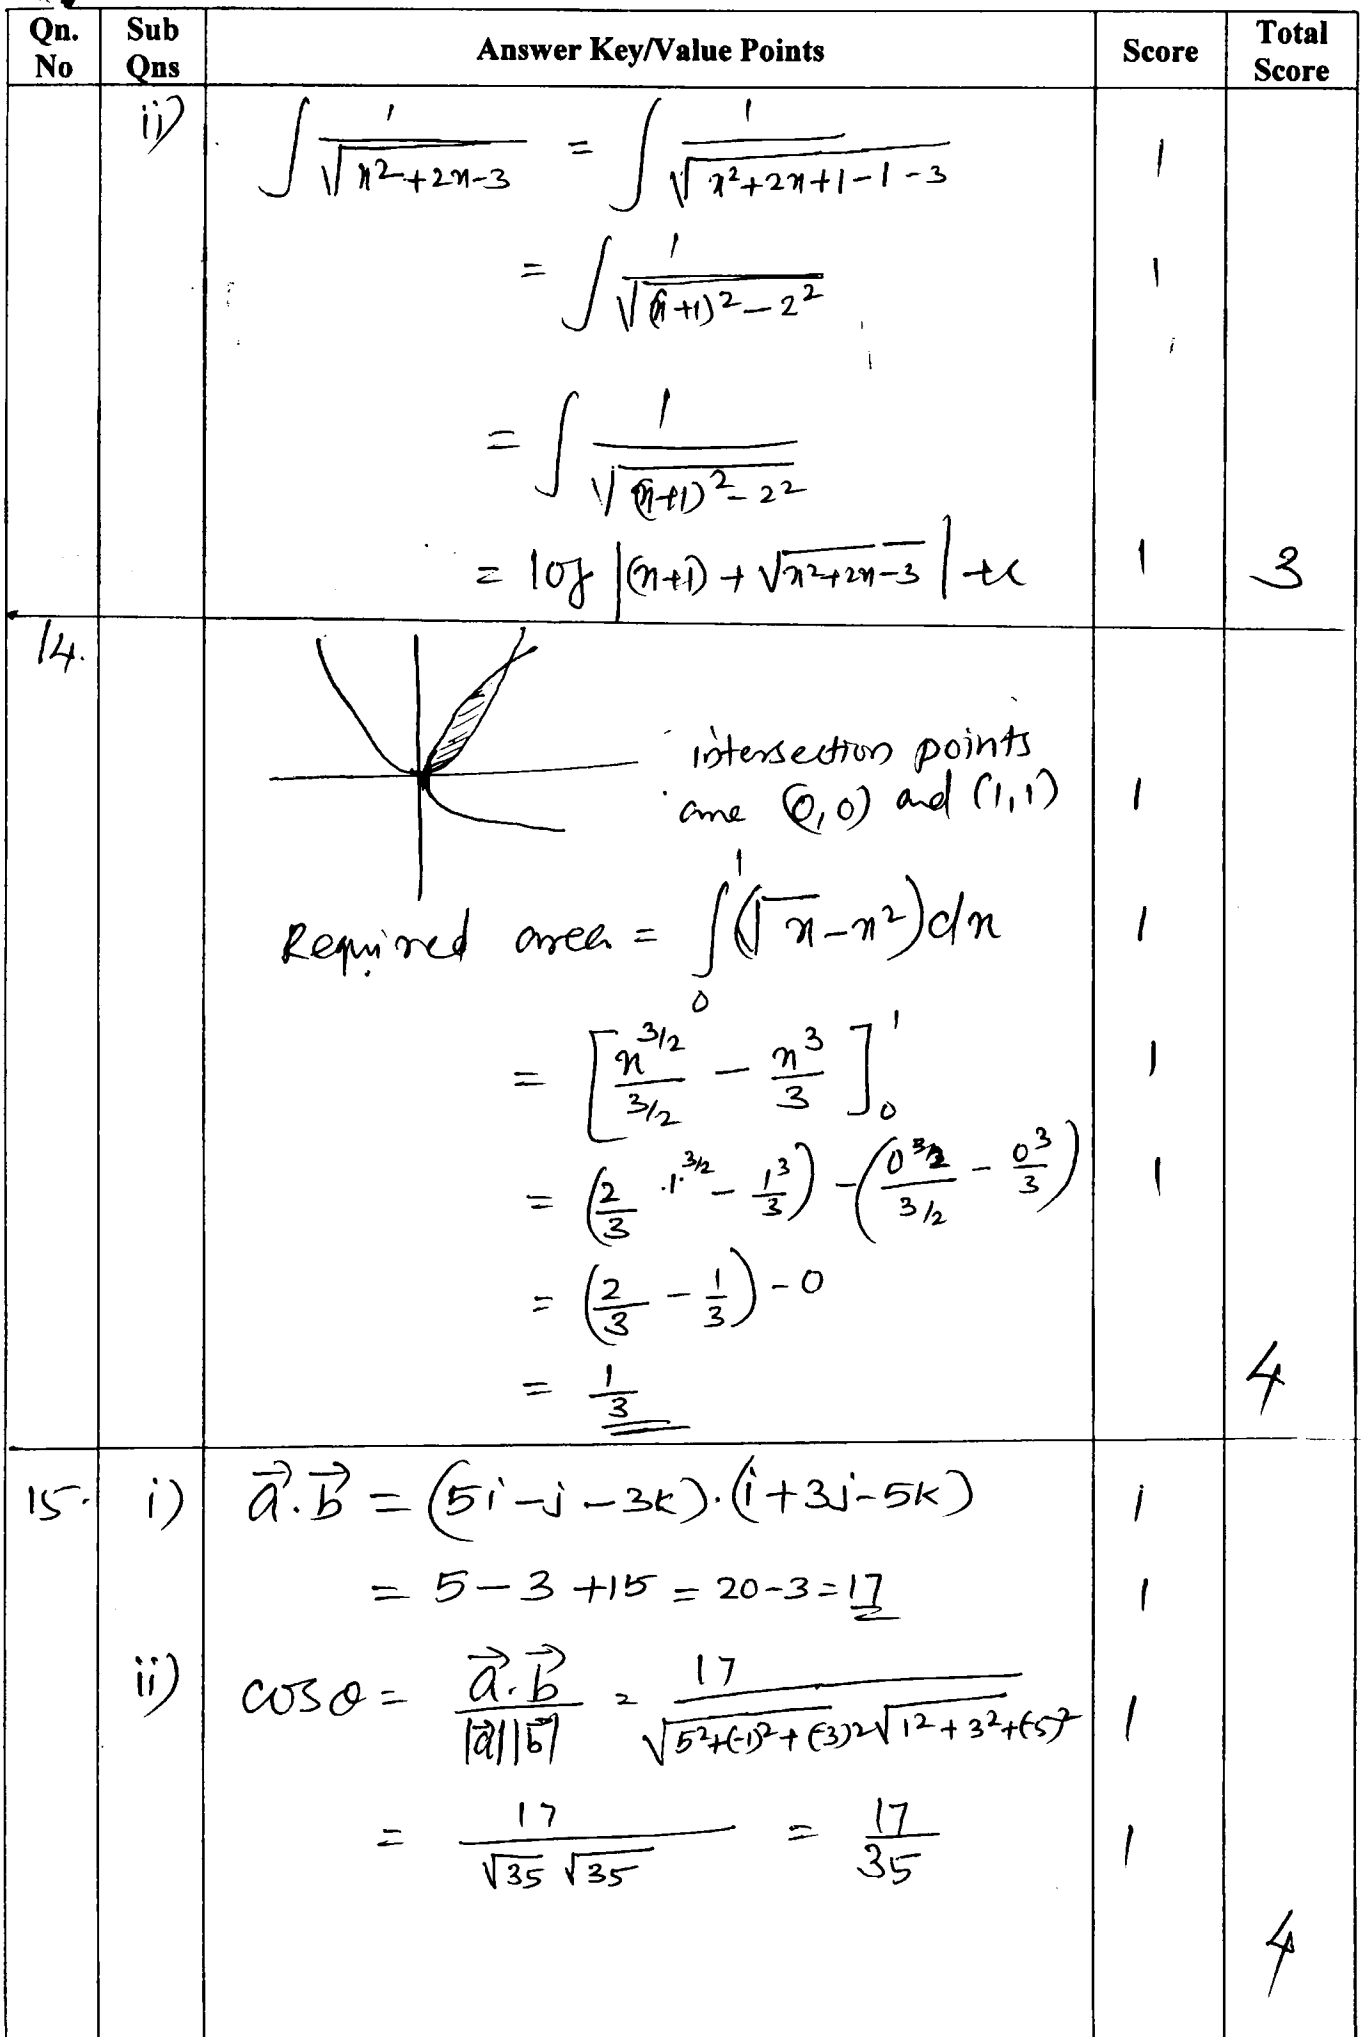 Qn. No | Sub Qns | Answer Key/Value Points | Score | Total Score
ii) ∫ 1/√(x²+2x-3) = ∫ 1/√(x²+2x+1-1-3) 1
= ∫ 1/√((x+1)²-2²) 1
= ∫ 1/√((x+1)²-2²)
= log |(x+1) + √(x²+2x-3)| + c 1 3
14.
intersection points
are (0,0) and (1,1) 1
Required area = ∫₀¹ (√x-x²)dx 1
= [x^(3/2)/(3/2) - x³/3]₀¹ 1
= (2/3 .1.^(3/2) - 1³/3) - (0^(3/2)/(3/2) - 0³/3) 1
= (2/3 - 1/3) - 0
= 1/3 4
15. i) a⃗.b⃗ = (5i-j-3k).(i+3j-5k) 1
= 5-3+15 = 20-3=17 1
ii) cosθ = a⃗.b⃗/|a⃗||b⃗| = 17/√(5²+(-1)²+(-3)²) √(1²+3²+(-5)²) 1
= 17/√35 √35 = 17/35 1
4